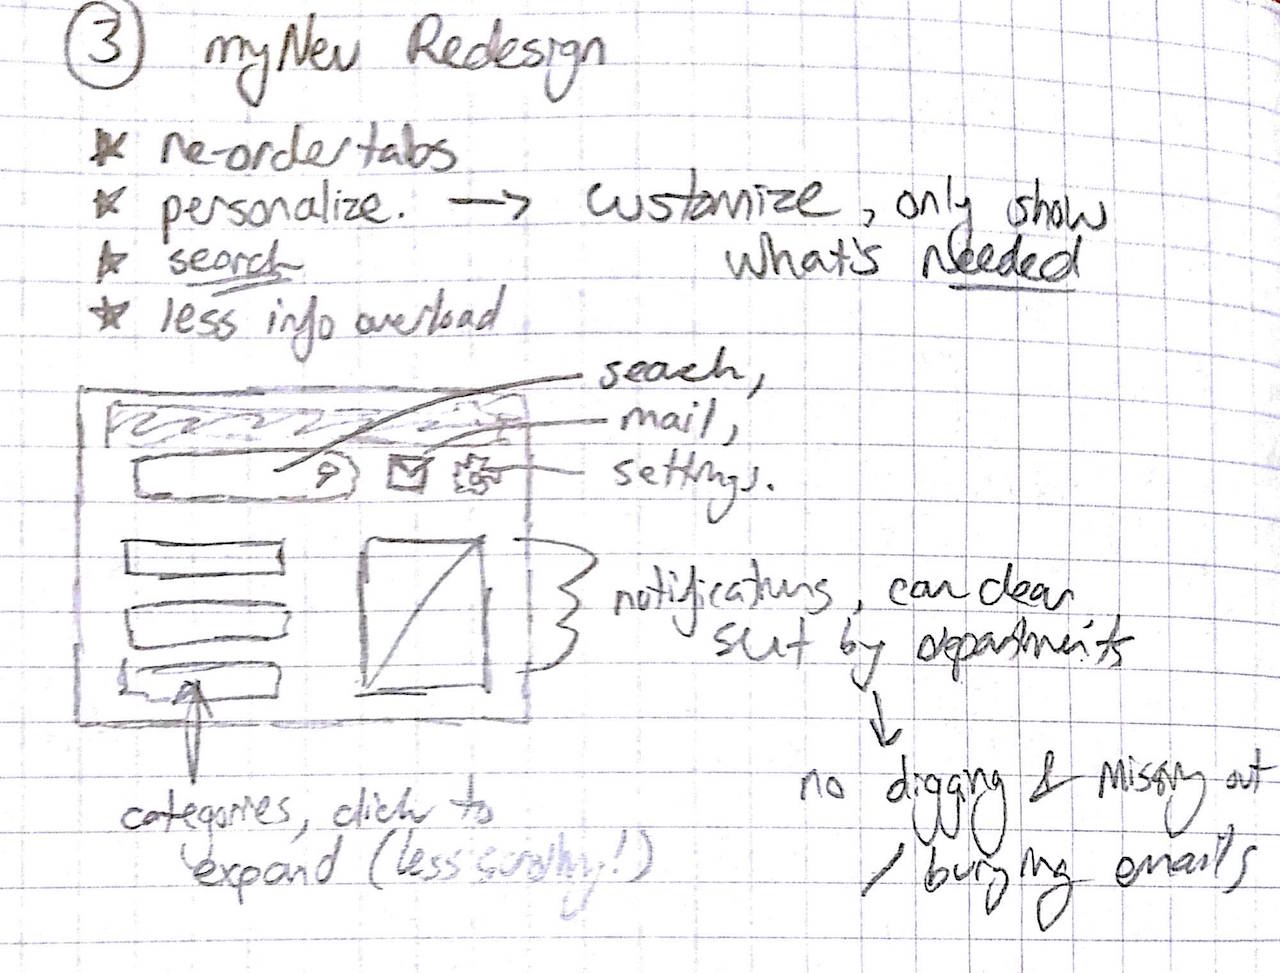 3 myNeu Redesign
★ re-order tabs
★ personalize. → customize, only show
what's needed
★ search
★ less info overload
search,
mail,
settings.
notifications, can clear
sort by departments
↓
no digging & missing out
/ burying emails
categories, click to
expand (less scrolling!)